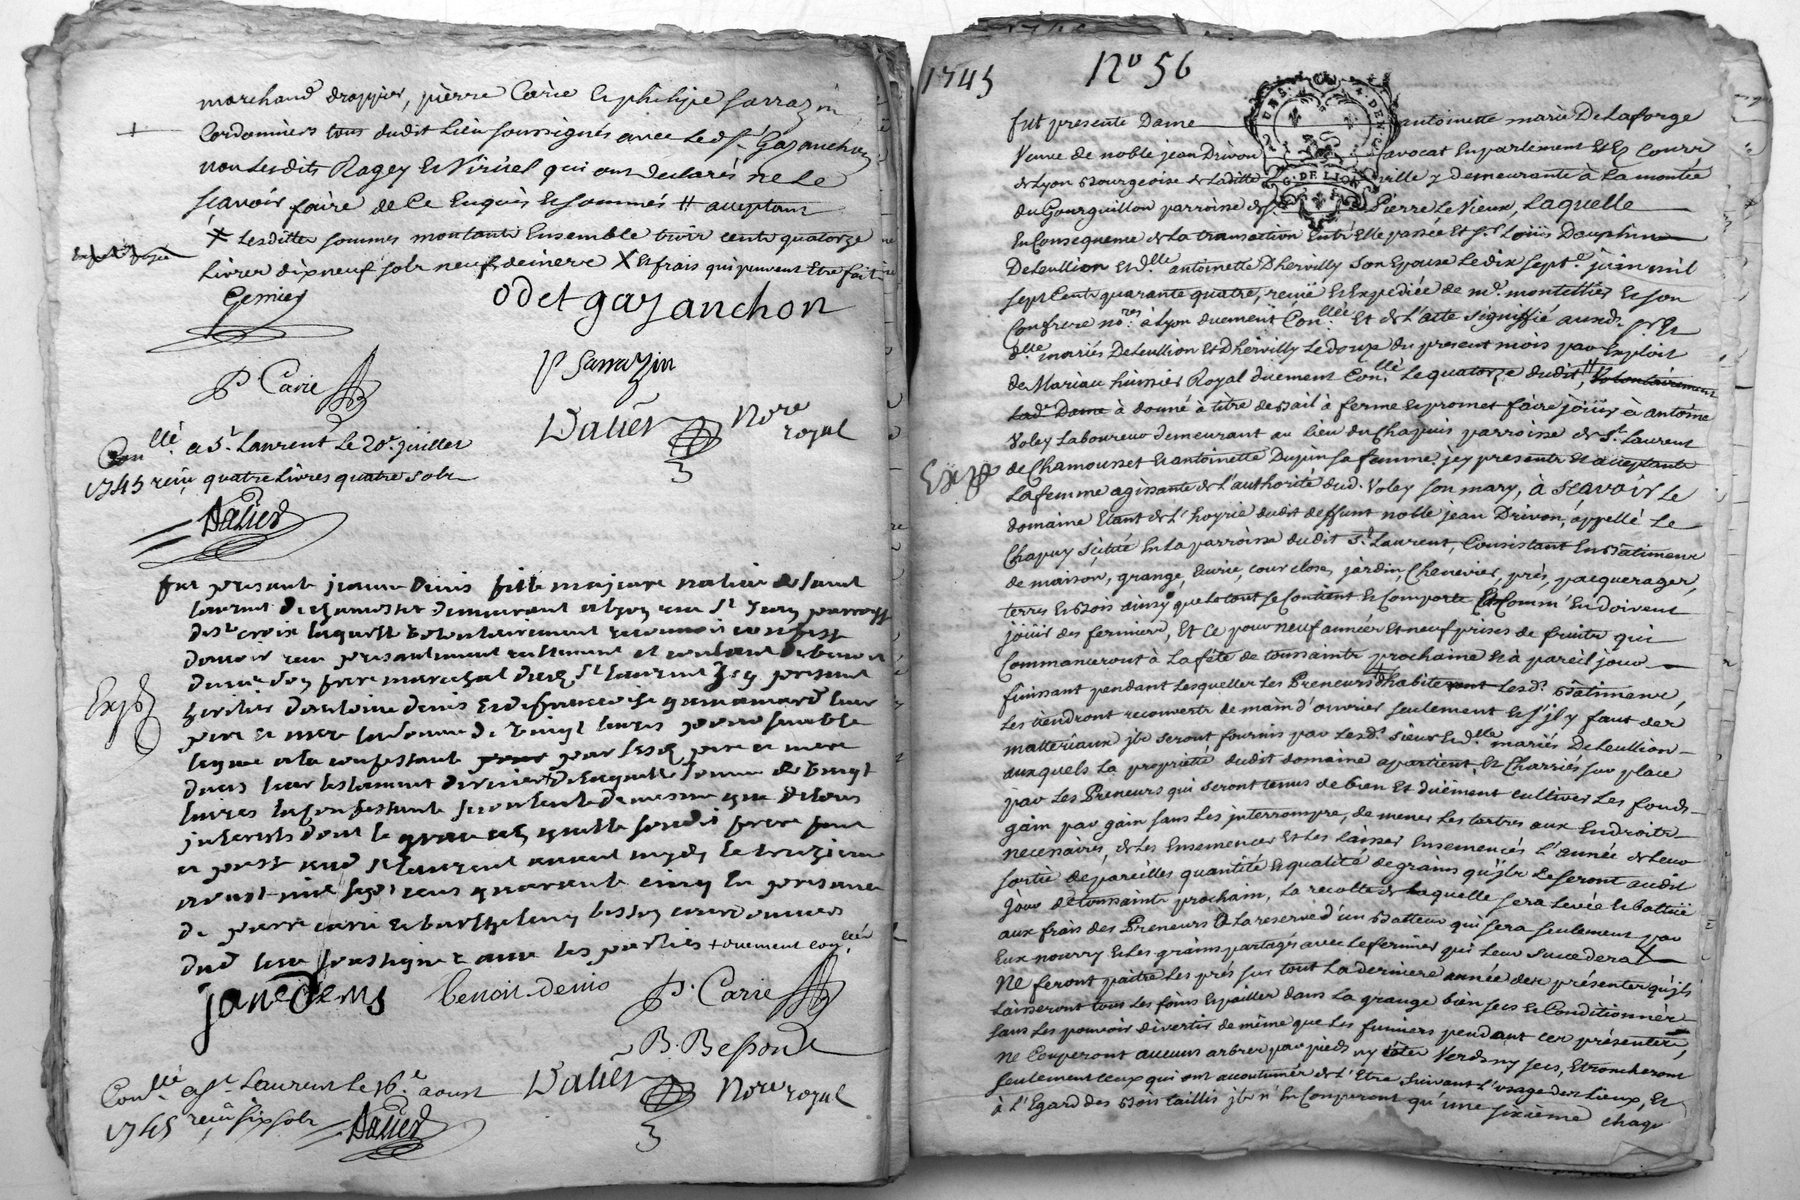 marchand drappier, pierre Carie et philipe Sarrazin
Cordonniers tous dudit Lieu soussignés avec Led. sr. Gazanchon
non Lesdits Ragey et qui ont declarés ne Le
scavoir faire de Ce Enquis et sommés # acceptant
Lesdittes sommes montants Ensemble trois cents quatorze
Livres dix neuf sols neuf deniers X et frais qui peuvent Etre fait
odet gazanchon
P Carie
P Sarrazin
Dalier Nore
royal
Conllé a St. Laurent Le 20e. juillet
1745 reçu quatre Livres quatre sols
Dalier
fut presante jeanne denis fille majeure native de saint
laurent de chamousset demeurant a lyon rue St jean parroisse
de ste croix laquelle volontairement reconnoit confesse
davoir reçu presantement reellement et contant de benoit
denis son frere marechal dud. St laurent jcy present
heritier dantoine denis et de françoise leur
pere et mere la somme de vingt livres pour semblable
leguee a la confessante par lesd. pere et mere
dans leur testament dernier de laquelle somme de vingt
livres la confessante se contente de mesme que de tous
interests dont le quitte sondit frere fait
et passé aud. St laurent avant midy le treizieme
aoust mil sept cens quarante cinq en presance
de pierre carie et barthelemy besson cordonniers
dud. lieu soussignes avec les parties + duement conllée
Expé
jane denis benoit denis P. Carie
B. Besson
Dalier Nore royal
Conllé a St. Laurent Le 16e. aoust
1745 reçu six sols Dalier
1745 No 56
GEN. DE LION
fut presente Dame antoinette marie DeLaforge
Veuve de noble jean Drivon avocat En parlement et Es Cours
de Lyon Bourgeoise de Laditte ville y demeurante à La montée
du Gourguillon parroisse de St. Pierre Le Vieux, Laquelle
En Consequence de La transaction Entre Elle passée Et sr. Loüis Dauphin
DeLeullion et dlle. antoinette Dhervilly son Epouse Le dix septe. juin mil
sept Cents quarante quatre, reçüe et Expediée de me. montellier et son
Confrere nores. à Lyon duement Conllée. Et de L'acte signiffié auxd. sr. Et
dlle. mariés DeLeullion et Dhervilly Le douze du present mois par Exploit
de Mariau huissier Royal düement Conllé. Le quatorze dudit, # Volontairement
Lad. Dame à donné à titre de Bail à ferme et promet faire joüir à antoine
Voley Laboureur demeurant au Lieu du Chapuis parroisse de St. Laurent
de Chamousset et antoinette Dupin sa femme jcy presents et acceptants
Expé
La femme agissante de L'authorité dud. Voley son mary, à scavoir Le
domaine Etant de L'hoyrie dudit deffunt noble jean Drivon, appellé Le
Chapuy sçitüé En La parroisse dudit St. Laurent, Consistant En Bâtiments
de maison, grange, Ecurie, cour close, jardin, Chenevier, prés, paquerages,
terres et Bois ainsy que le tout se Contient et Comporte Et Comm' En doivent
joüir des fermiers, Et Ce pour neuf années Et neuf prises de fruits qui
Commanceront à La fête de toussaints prochaine et à pareil jour
finissant pendant Lesquelles Les Preneurs habiteront Lesd. Bâtiments,
Les tiendront recouverts de main d'ouvrier seulement et s'jl y faut des
matteriaux jls seront fournis par Lesd. sieur et dlle. mariés DeLeullion
auxquels La propriété dudit domaine apartient, Et Charriés sur place
par Les Preneurs qui seront tenus de bien Et düement cultiver Les fonds
gain par gain sans Les jnterrompre, de mener Les tertres aux Endroits
necessaires, de Les Ensemencer et Les Laisser Ensemencés L'année de Leur
sortie de pareilles quantité et qualité de grains qu'jls Le seront audit
jour de toussaints prochain, La recolte de Laquelle sera Levée et battüe
aux frais des Preneurs à La reserve d'un Batteur qui sera seulement par
Eux nourry et Les grains partagés avec Le fermier qui Leur succedera
Ne feront paitre Les prés sur tout La derniere année des presentes qu'jls
Laisseront tous Les foins et pailles dans La grange bien secs et Conditionnés
sans Les pouvoir divertir de même que Les fumiers pendant ces présentes,
Ne Couperont aucuns arbres par pieds ny tête Verds ny secs, Etroncheront
seulement ceux qui ont accoutumés de L'Etre suivant L'usage des Lieux, et
à L'Egard des Bois taillis jls n'En Couperont qu'une sixieme chaqe